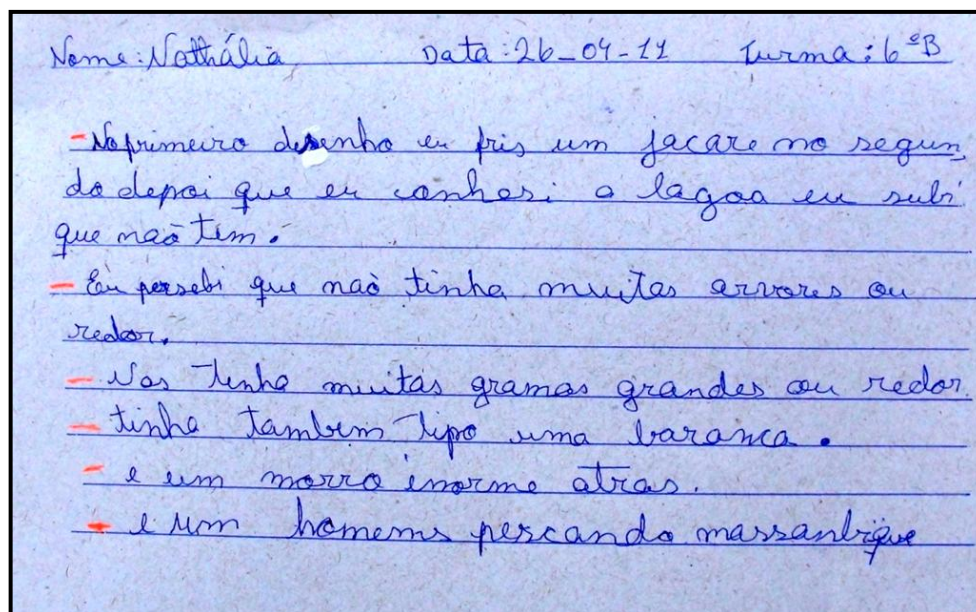 Nome: Nathália Data: 26-04-11 Turma: 6ªB
- No primeiro desenho eu fris um jacare no segun
do depoi que eu conhesi a lagoa eu subi
que naõ tem.
- Eu persebi que naõ tinha muitas arvores ou
redor.
- Nas tinha muitas gramas grandes ou redor.
- tinha tambem tipo uma baranca.
- e um morro enorme atras.
- e um homems pescando massanbique